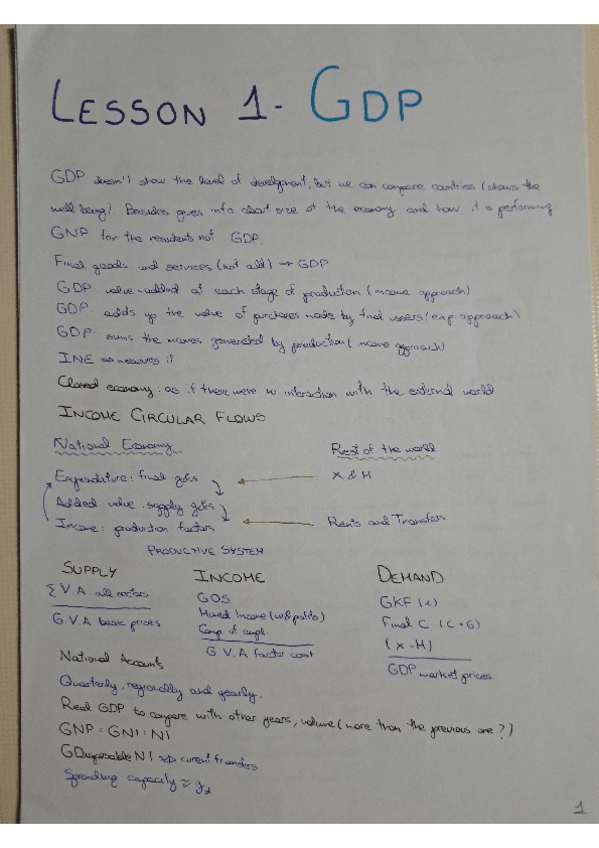 LESSON 1- GDP
GDP doesn't show the level of development, but we can compare countries (shows the
well being) Besides gives info about size of the economy and how it is performing
GNP for the residents not GDP.
Final goods and services (not all) → GDP
GDP value-added at each stage of production (income approach)
GDP: adds up the value of purchases made by final users (exp. approach)
GDP: sums the incomes generated by production (income approach)
INE ⇒ measures it
Closed economy: as if there were no interaction with the external world
INCOME CIRCULAR FLOWS
National Economy
Rest of the world
Expenditure: final g&s
X & M
Added value: supply g&s
Income: production factors
Rents and Transfers
PRODUCTIVE SYSTEM
SUPPLY
INCOME
DEMAND
Σ V.A. all sectors
GOS
GKF (I)
Mixed Income (w&profits)
Final C (C+G)
G.V.A basic prices
Comp. of empl.
(X-M)
G.V.A factor cost
GDP market prices
National Accounts
Quarterly, regionally and yearly.
Real GDP to compare with other years, volume (more than the previous one?)
GNP = GNI = NI
GDisposable NI ⇒ current transfers
Spending capacity ≈ yd
1